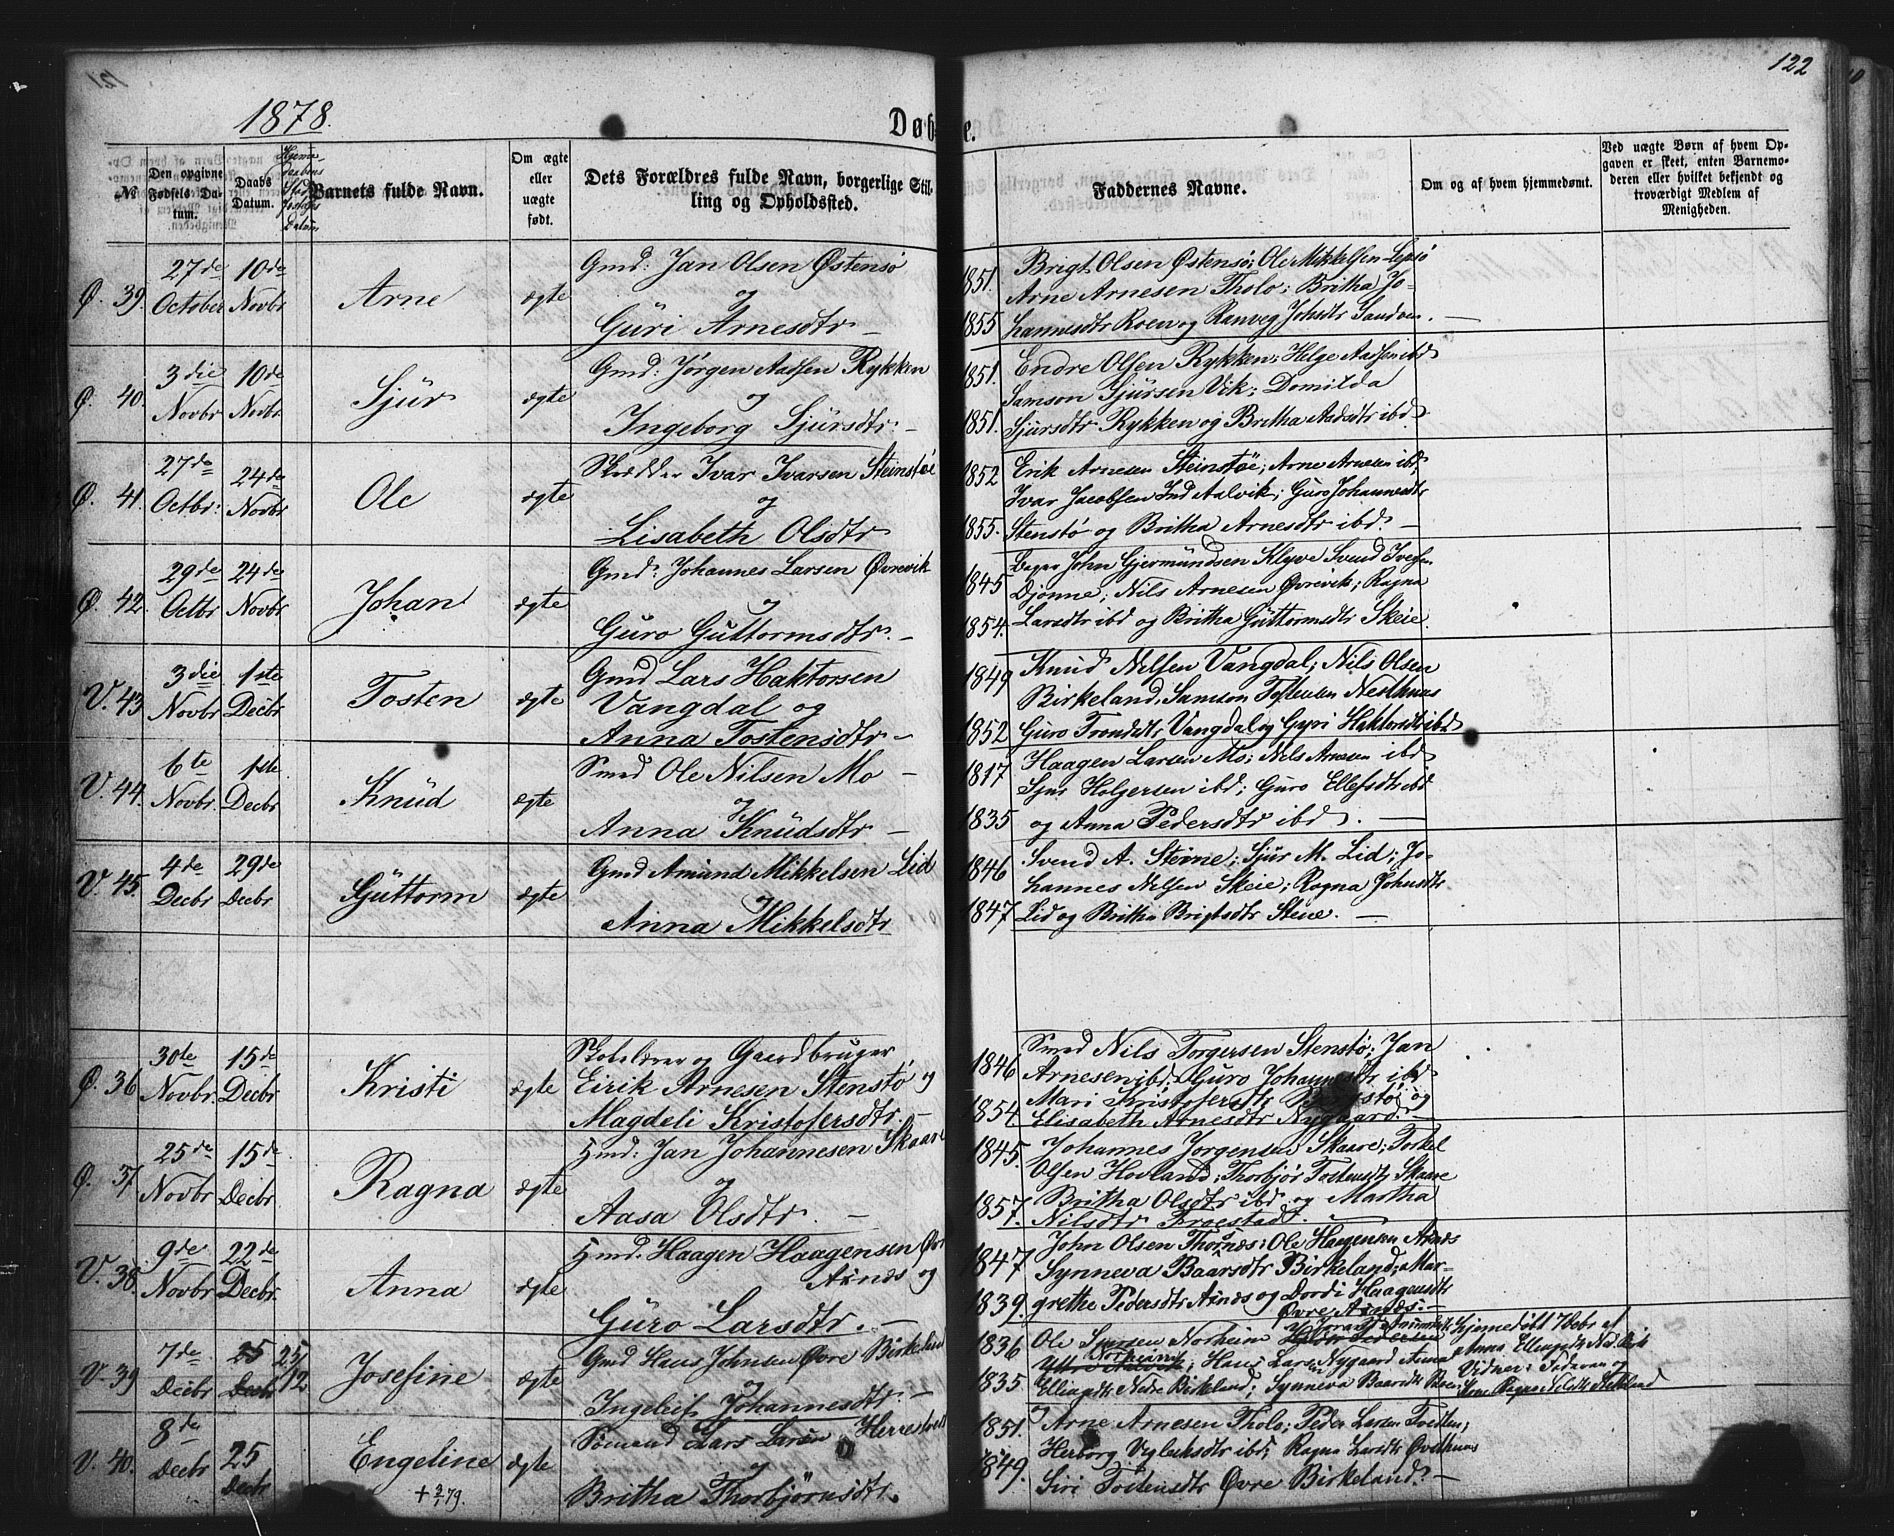 122
1878.
Døbte.
№
Den opgivne Fødsels Datum.
Daabs Datum.
Barnets fulde Navn.
Om ægte eller uægte født.
Dets Forældres fulde Navn, borgerlige Stilling og Opholdssted.
Faddernes Navne.
Om og af hvem hjemmedømt.
Ved uægte Børn af hvem Opgaven er skeet, enten Barnemoderen eller hvilket bekjendt og troværdigt Medlem af Menigheden.
Ø. 39. 27de October 10de Novbr Arne ægte
Gmd: Jan Olsen Østensø
og
Guri Arnesdtr
1851. Brigt Olsen Østensø; Ole Mikkelsen Lepsø
Arne Arnesen Tholo; Britha Jo-
1855 hannesdtr Roen og Ranveg Johsdtr Sandven.
Ø. 40. 3die Novbr 10de Novbr Sjur ægte
Gmd: Jørgen Aadsen Rykken
og
Ingeborg Sjursdtr
1851. Endre Olsen Rykken; Helge Aadsen ibd
Samson Sjursen Vik; Domilda
1851. Sjursdtr Rykken og Britha Aadsdtr ibd
Ø. 41. 27de Octbr: 24de Novbr Ole ægte
Skrædder Ivar Ivarsen Steinstøe
og
Lisabeth Olsdtr
1852 Erik Arnesen Steinstøe; Arne Arnesen ibd;
Ivar Jacobsen Ind Aalvik; Guro Johannesdtr
1855. Stenstø og Britha Arnesdtr ibd.
Ø. 42. 29de Octbr 24de Novbr Johan ægte
Gmd: Johannes Larsen Øvrevik
og
Guro Guttormsdtr.
1845 John Gjermundsen Klyve Svend Iversen
Djønne; Nils Arnesen Øvrevik; Ragna
1854. Larsdtr ibd og Britha Guttormsdtr Skeie.
V. 43 3die Novbr 1ste Decbr Tosten ægte
Gmd Lars Haktorsen
Vangdal og
Anna Tostensdtr
1849 Knud Nelsen Vangdal; Nils Olsen
Birkeland, Samson Tostensen Nesthuus
1852 Guro Trondsdtr Vangdal og Gyri Haktorsdtr ibd
V. 44. 6te Novbr. 1ste Decbr Knud ægte
Smed Ole Nilsen Mo
og
Anna Knudsdtr.
1817 Haagen Larsen Mo; Nels Arnesen ibd
Sjur Holgersen ibd; Guro Ellefsdtr ibd
1835 og Anna Pedersdtr ibd.
V. 45. 4de Decbr 29de Decbr Guttorm ægte
Gmd Amund Mikkelsen Lid
og
Anna Mikkelsdtr
1846 Svend A. Steine; Sjur M. Lid; Jo-
hannes Nelsen Skeie; Ragna Johnsdtr
1847 Lid og Britha Brigtsdtr Steine.
Ø. 36 30te Novbr. 15de Decbr Kristi ægte
Skolelærer og Gaardbruger
Eirik Arnesen Stenstø og
Magdeli Kristofersdtr.
1846 Smed Nils Torgersen Stenstø; Jan
Arnesen ibd; Guro Johannesdtr ibd
1854 Mari Kristofersdtr og
Elisabeth Arnesdtr Nygaard
Ø. 37 25de Novbr 15de Decbr Ragna ægte
Hmd: Jan Johannesen Skaare
og
Aasa Olsdtr.
1845. Johannes Jorgensen Skaare; Torkel
Olsen Hovland; Thorbjør Tostensdtr Skaare
1857. Britha Olsdtr ibd og Martha
Nilsdtr
V. 38. 9de Novbr 22de Decbr. Anna ægte
Hmd. Haagen Haagensen Øvr
Axnes og
Guro Larsdtr.
1847 John Olsen Thornæs; Ole Haagensen Axnæs
Synneva Baarsdtr Birkeland; Mar-
1839. grethe Pedersdtr Axnæs og Dordi Haagensdtr
Øvre Axnæs.
V. 39 7de Decbr 25 Decbr 25/12 Josefine ægte
Gmd Hans Johnsen Øvre Birkeland
og
Ingeleif Johannesdtr.
1836 Ole Norheim
Norheim; Hans Larsen Nygaard Anna
1835. Nedre Birkeland; Synneva Baarsdtr
Hjemmedøbt 7 Debr af
Anna
Vidner: og
V. 40. 8de Decbr 25 Decbr Engeline ægte
+ 3/1 79.
Sømand Lars Larsen Herrestveit
og
Britha Thorbjørnsdtr.
1851. Arne Arnesen Tholo; Peder Larsen Tvedten;
Herborg ibd; Ragna Larsdtr
1849. Siri Tostensdtr Øvre Birkeland.